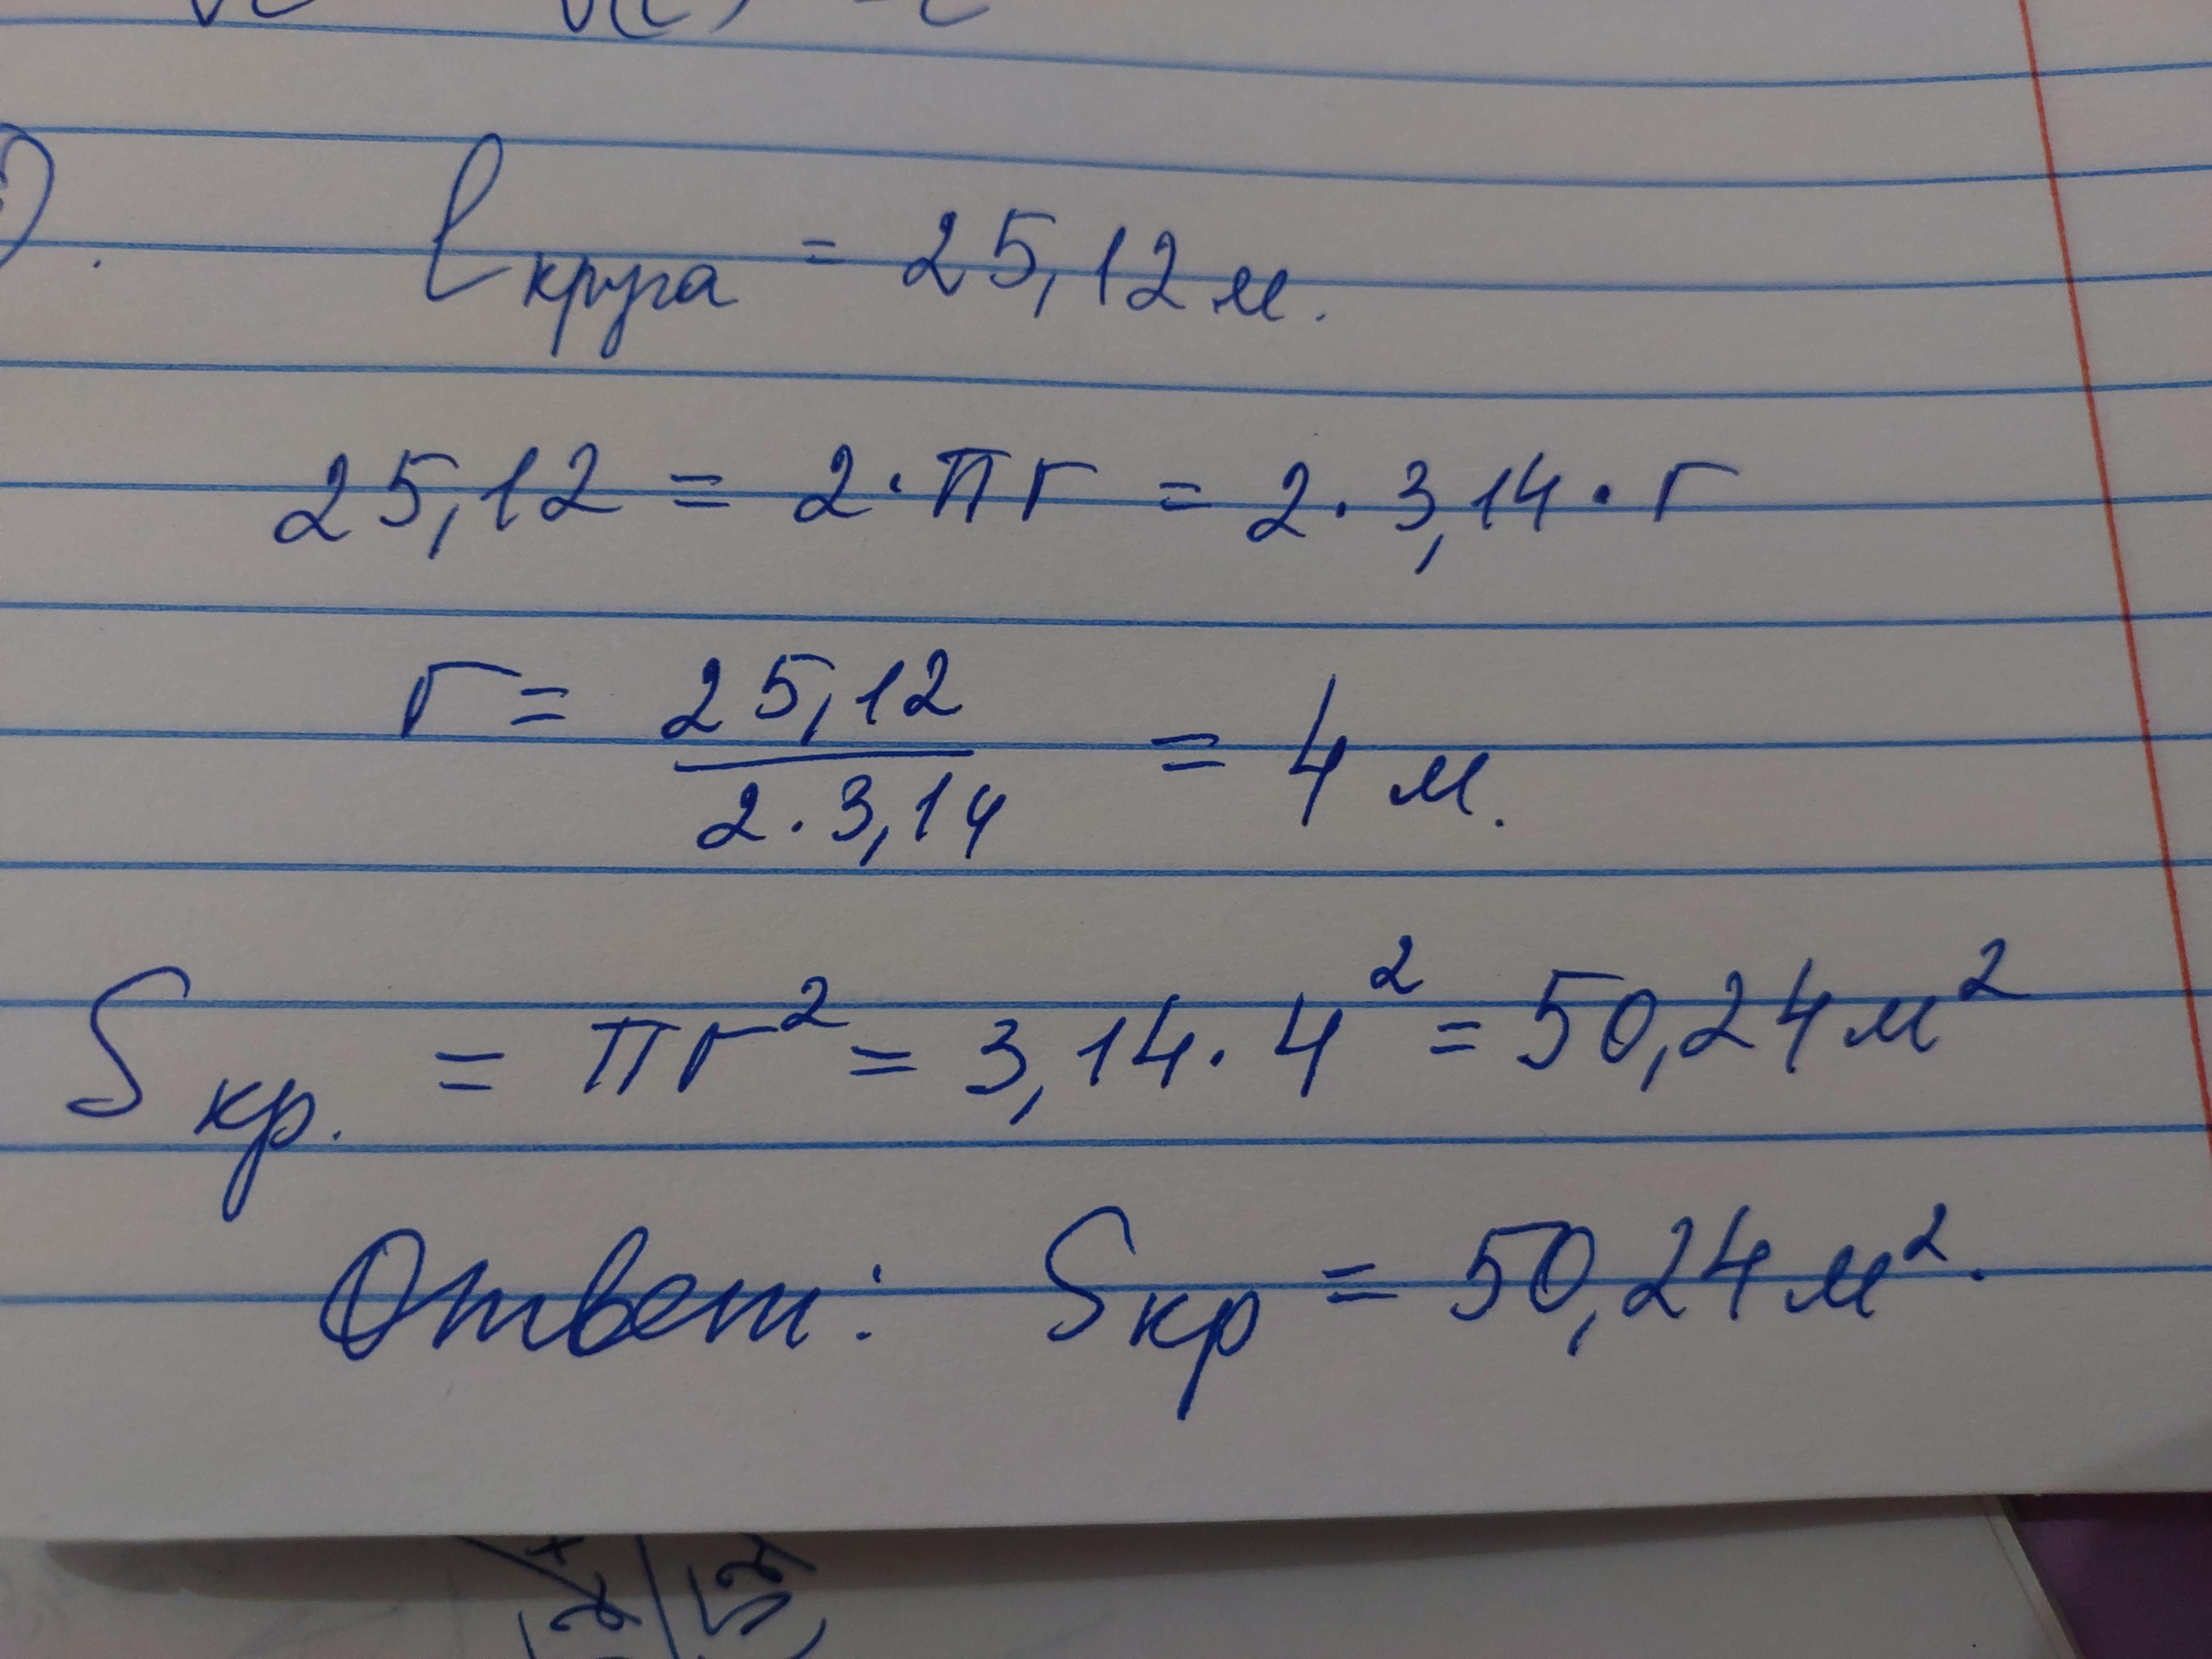 ℓ круга = 25,12 м.
25,12 = 2 · π r = 2 · 3,14 · r
r = 25,12 / 2 · 3,14 = 4 м.
S кр. = π r² = 3,14 · 4² = 50,24 м²
Ответ: S кр = 50,24 м².